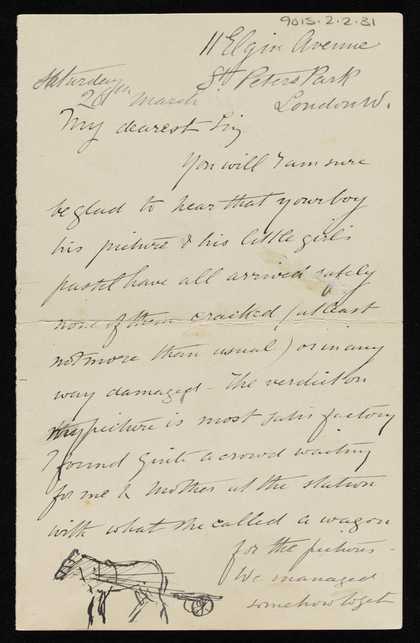 9015.2.2.31
11 Elgin Avenue
St Peters Park
London W.
Saturday
26th March
My dearest
You will I am sure
be glad to hear that your boy
his picture & his little girl's
pastel have all arrived safely
none of them cracked (at least
not more than usual) or in any
way damaged - The verdict on
my picture is most satisfactory
I found quite a crowd waiting
for me & Mother at the station
with what she called a wagon
for the pictures -
We managed
somehow to get